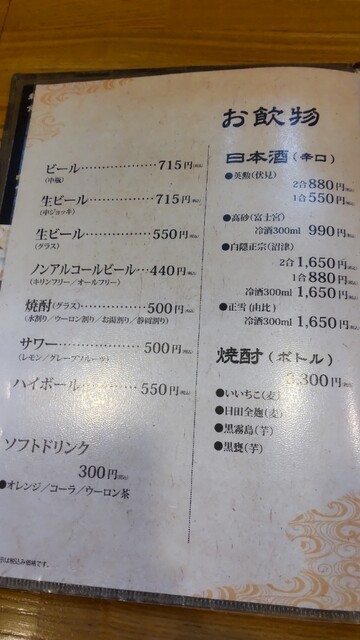 お飲物
ビール…………………715円(税込)
(中瓶)
生ビール………………715円(税込)
(中ジョッキ)
生ビール………………550円(税込)
(グラス)
ノンアルコールビール…440円(税込)
(キリンフリー/オールフリー)
焼酎(グラス)……………500円(税込)
(水割り/ウーロン割り/お湯割り/静岡割り)
サワー…………………500円(税込)
(レモン/グレープフルーツ)
ハイボール……………550円(税込)
ソフトドリンク
300円(税込)
●オレンジ/コーラ/ウーロン茶
は税込み価格です。
日本酒(辛口)
●英勲(伏見)
2合 880円(税込)
1合 550円(税込)
●高砂(富士宮)
冷酒300ml 990円(税込)
●白隠正宗(沼津)
2合 1,650円(税込)
1合 880円(税込)
冷酒300ml 1,650円(税込)
●正雪(由比)
冷酒300ml 1,650円(税込)
焼酎(ボトル)
3,300円(税込)
●いいちこ(麦)
●日田全麹(麦)
●黒霧島(芋)
●黒甕(芋)